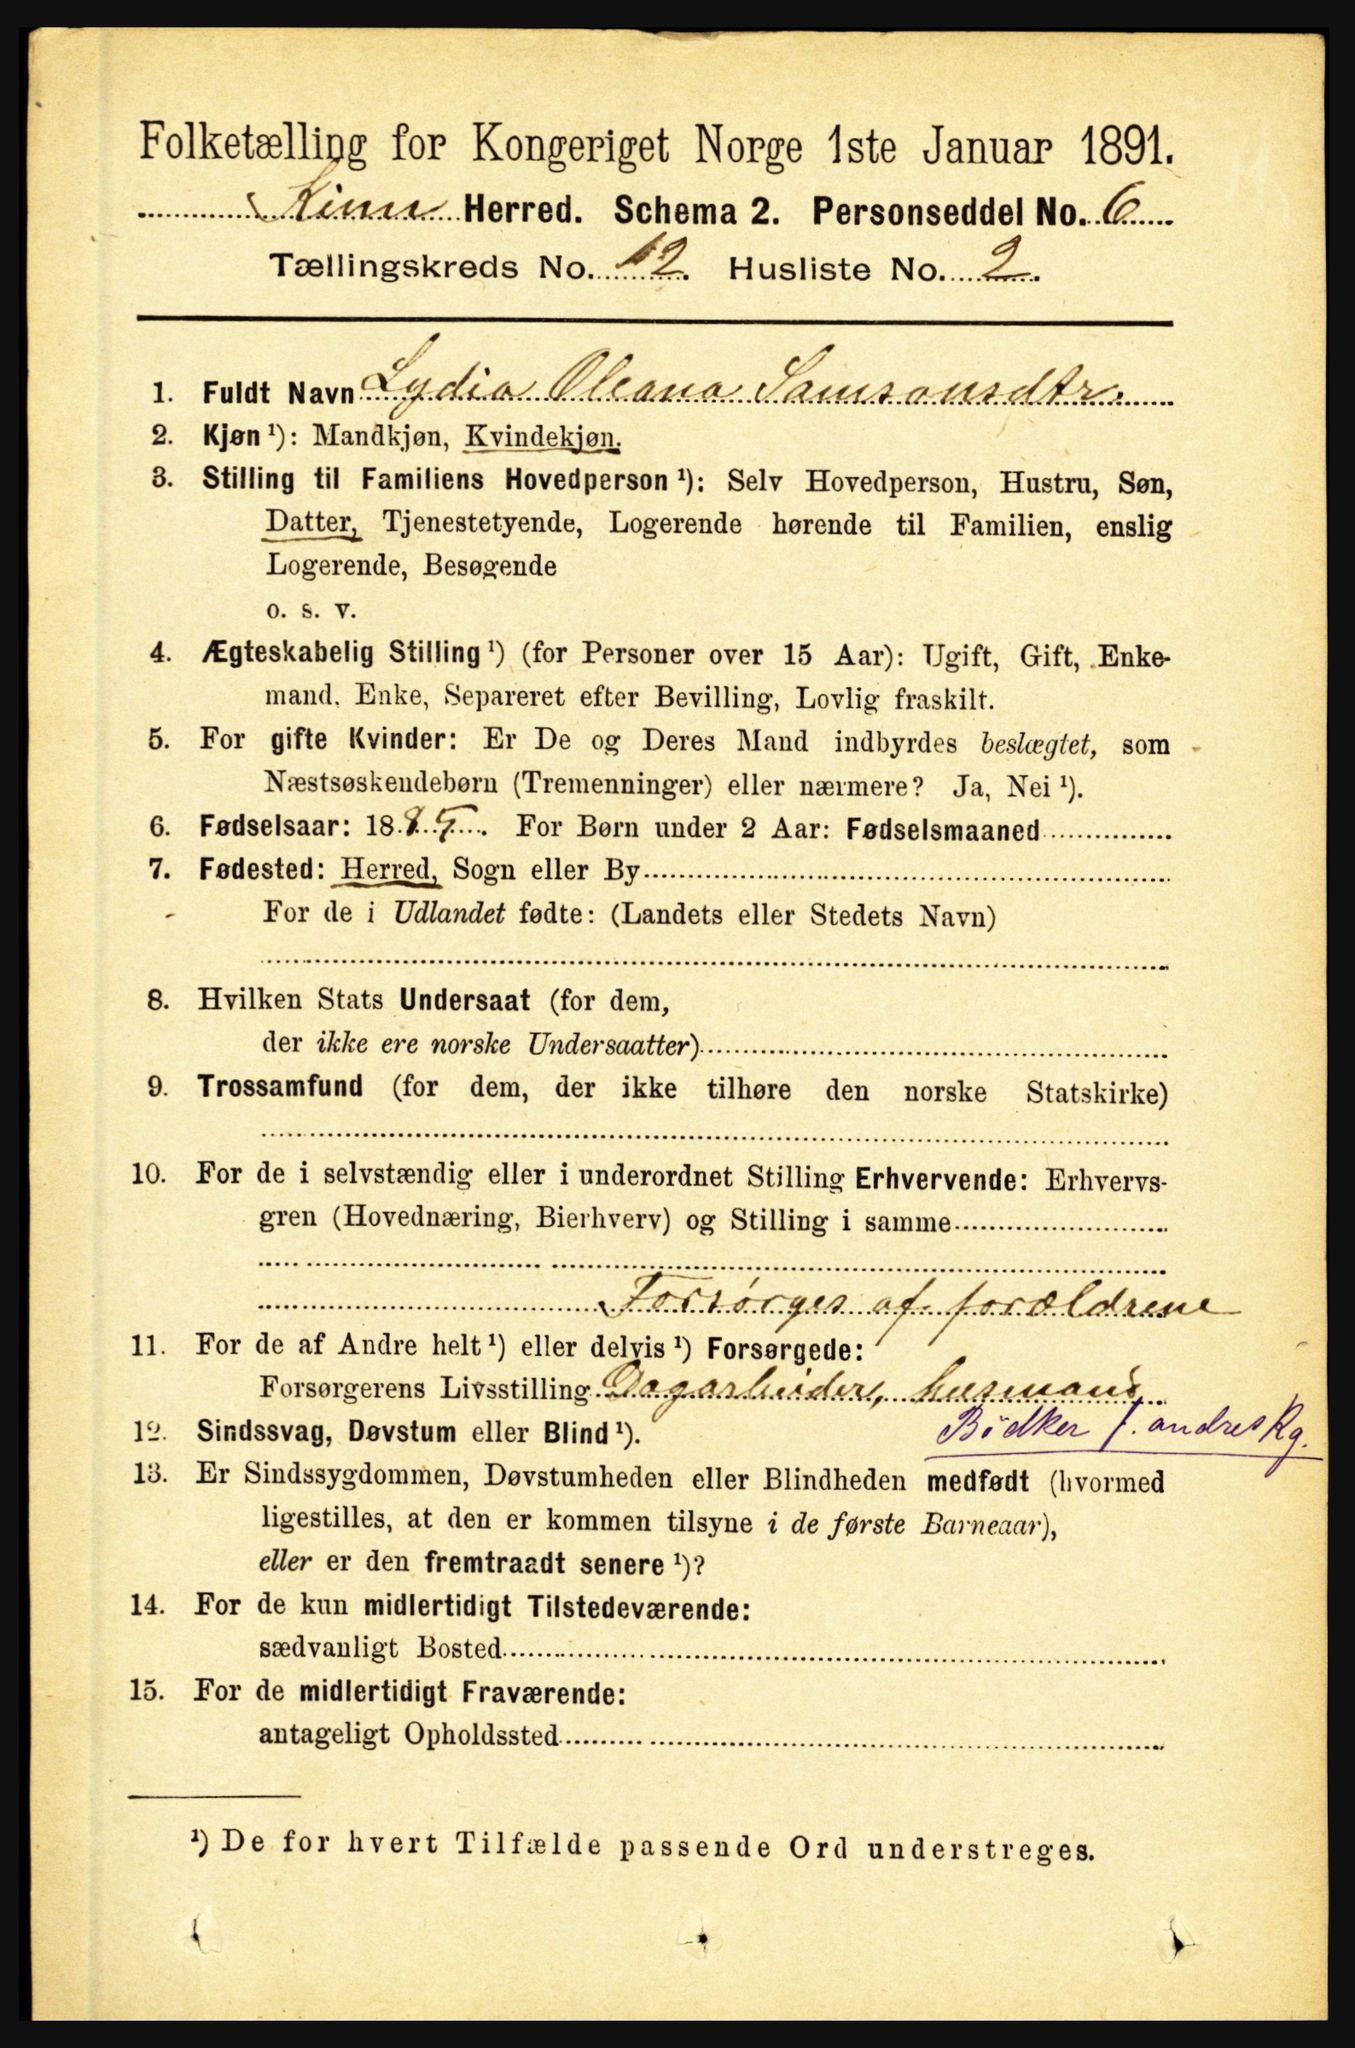 Folketælling for Kongeriget Norge 1ste Januar 1891.
Kinn Herred. Schema 2. Personseddel No. 6
Tællingskreds No. 12. Husliste No. 2.
1. Fuldt Navn Lydia Oleana Samsonsdtr.
2. Kjøn ¹): Mandkjøn, Kvindekjøn.
3. Stilling til Familiens Hovedperson ¹): Selv Hovedperson, Hustru, Søn,
Datter, Tjenestetyende, Logerende hørende til Familien, enslig
Logerende, Besøgende
o. s. v.
4. Ægteskabelig Stilling ¹) (for Personer over 15 Aar): Ugift, Gift, Enke-
mand, Enke, Separeret efter Bevilling, Lovlig fraskilt.
5. For gifte Kvinder: Er De og Deres Mand indbyrdes beslægtet, som
Næstsøskendebørn (Tremenninger) eller nærmere? Ja, Nei ¹).
6. Fødselsaar: 1885. For Børn under 2 Aar: Fødselsmaaned
7. Fødested: Herred, Sogn eller By
For de i Udlandet fødte: (Landets eller Stedets Navn)
8. Hvilken Stats Undersaat (for dem,
der ikke ere norske Undersaatter)
9. Trossamfund (for dem, der ikke tilhøre den norske Statskirke)
10. For de i selvstændig eller i underordnet Stilling Erhvervende: Erhvervs-
gren (Hovednæring, Bierhverv) og Stilling i samme
Forsørges af forældrene
11. For de af Andre helt ¹) eller delvis ¹) Forsørgede:
Forsørgerens Livsstilling Dagarbeider, husmand
Bødker f. andres Rg.
12. Sindssvag, Døvstum eller Blind ¹).
13. Er Sindssygdommen, Døvstumheden eller Blindheden medfødt (hvormed
ligestilles, at den er kommen tilsyne i de første Barneaar),
eller er den fremtraadt senere ¹)?
14. For de kun midlertidigt Tilstedeværende:
sædvanligt Bosted
15. For de midlertidigt Fraværende:
antageligt Opholdssted
¹) De for hvert Tilfælde passende Ord understreges.